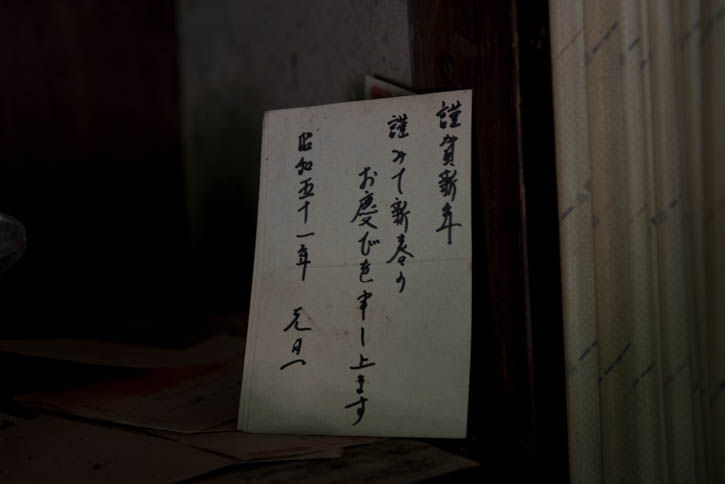 謹賀新年
謹みて新春の
お慶びを申し上ます
昭和五十一年 元旦